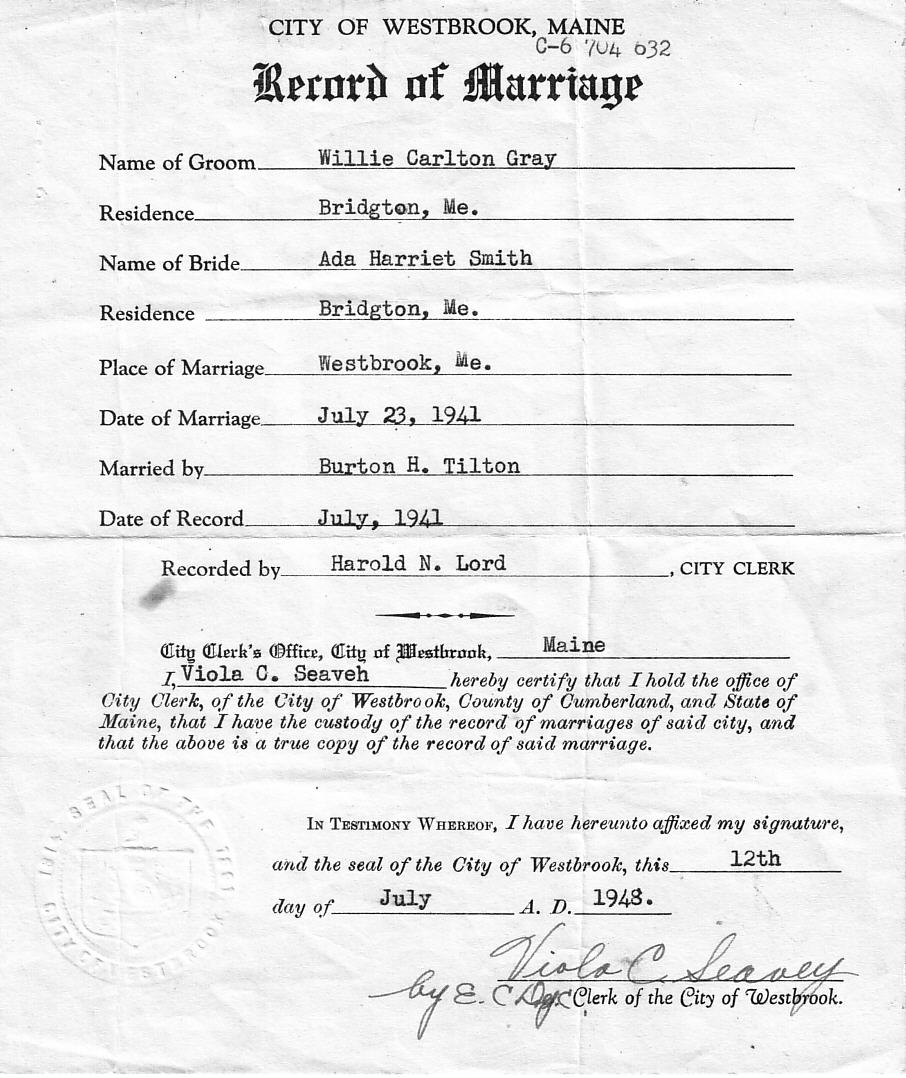 CITY OF WESTBROOK, MAINE
C-6 704 632
Record of Marriage
Name of Groom Willie Carlton Gray
Residence Bridgton, Me.
Name of Bride Ada Harriet Smith
Residence Bridgton, Me.
Place of Marriage Westbrook, Me.
Date of Marriage July 23, 1941
Married by Burton H. Tilton
Date of Record July, 1941
Recorded by Harold N. Lord , CITY CLERK
City Clerk's Office, City of Westbrook, Maine
I, Viola C. Seaveh hereby certify that I hold the office of
City Clerk, of the City of Westbrook, County of Cumberland, and State of
Maine, that I have the custody of the record of marriages of said city, and
that the above is a true copy of the record of said marriage.
IN TESTIMONY WHEREOF, I have hereunto affixed my signature,
and the seal of the City of Westbrook, this 12th
day of July A. D. 1948.
Viola C. Seavey
by E. C
Clerk of the City of Westbrook.
SEAL OF THE
CITY OF WESTBROOK